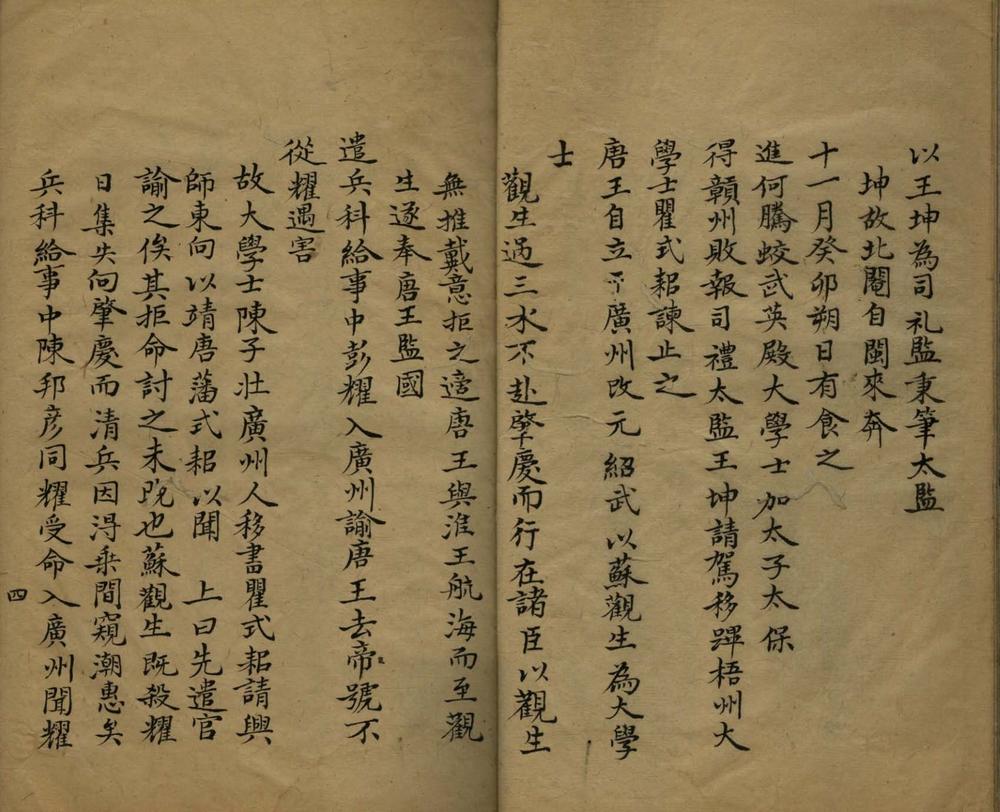 以王坤為司礼監秉筆太監
坤故北閹自閩來奔
十一月癸卯朔日有食之
進何騰蛟武英殿大學士加太子太保
得贑州敗報司禮太監王坤請駕移蹕梧州大
學士瞿式耜諫止之
唐王自立于廣州改元紹武以蘇觀生為大學
士
觀生過三水不赴肇慶而行在諸臣以觀生
無推戴意拒之適唐王與淮王航海而至觀
生遂奉唐王監國
遣兵科給事中彭耀入廣州諭唐王去帝號不
從耀遇害
故大學士陳子壯廣州人移書瞿式耜請興
師東向以靖唐藩式耜以聞　上曰先遣官
諭之俟其拒命討之未晚也蘇觀生既殺耀
日集失向肇慶而清兵因淂乗間窺潮惠矣
兵科給事中陳邦彦同耀受命入廣州聞耀
四